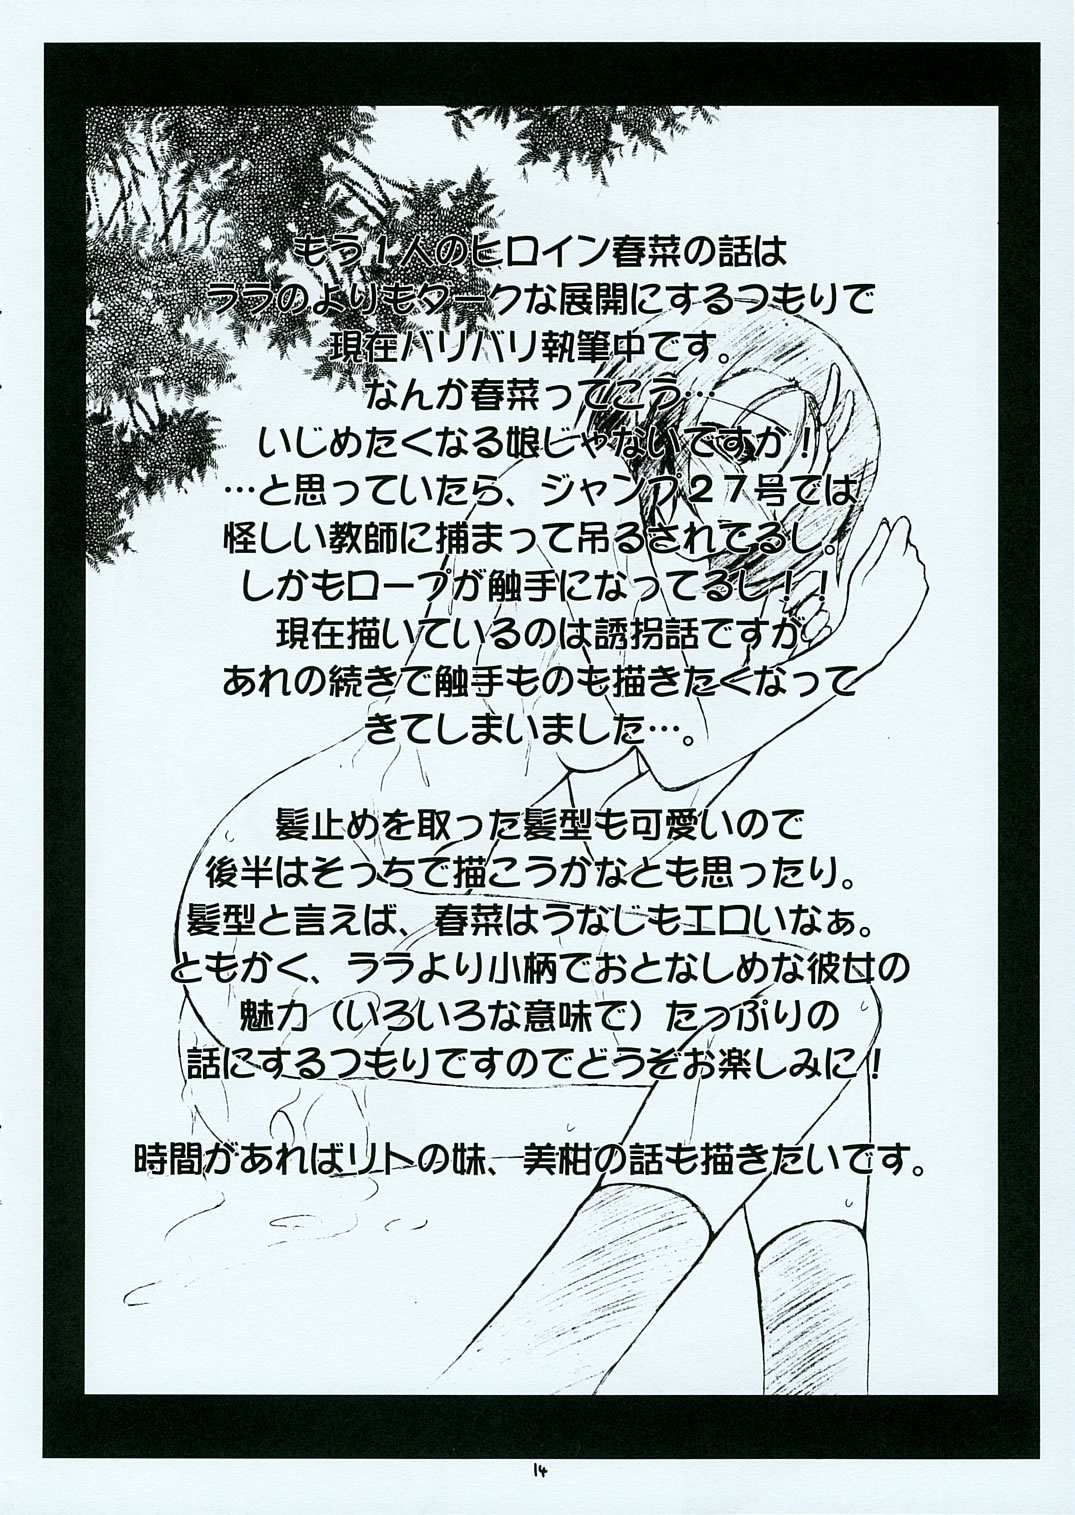 もう１人のヒロイン春菜の話は
ララのよりもダークな展開にするつもりで
現在バリバリ執筆中です。
なんか春菜ってこう…
いじめたくなる娘じゃないですか！
…と思っていたら、ジャンプ２７号では
怪しい教師に捕まって吊るされてるし。
しかもロープが触手になってるし！！
現在描いているのは誘拐話ですが
あれの続きで触手ものも描きたくなって
きてしまいました…。
髪止めを取った髪型も可愛いので
後半はそっちで描こうかなとも思ったり。
髪型と言えば、春菜はうなじもエロいなぁ。
ともかく、ララより小柄でおとなしめな彼女の
魅力（いろいろな意味で）たっぷりの
話にするつもりですのでどうぞお楽しみに！
時間があればリトの妹、美柑の話も描きたいです。
14